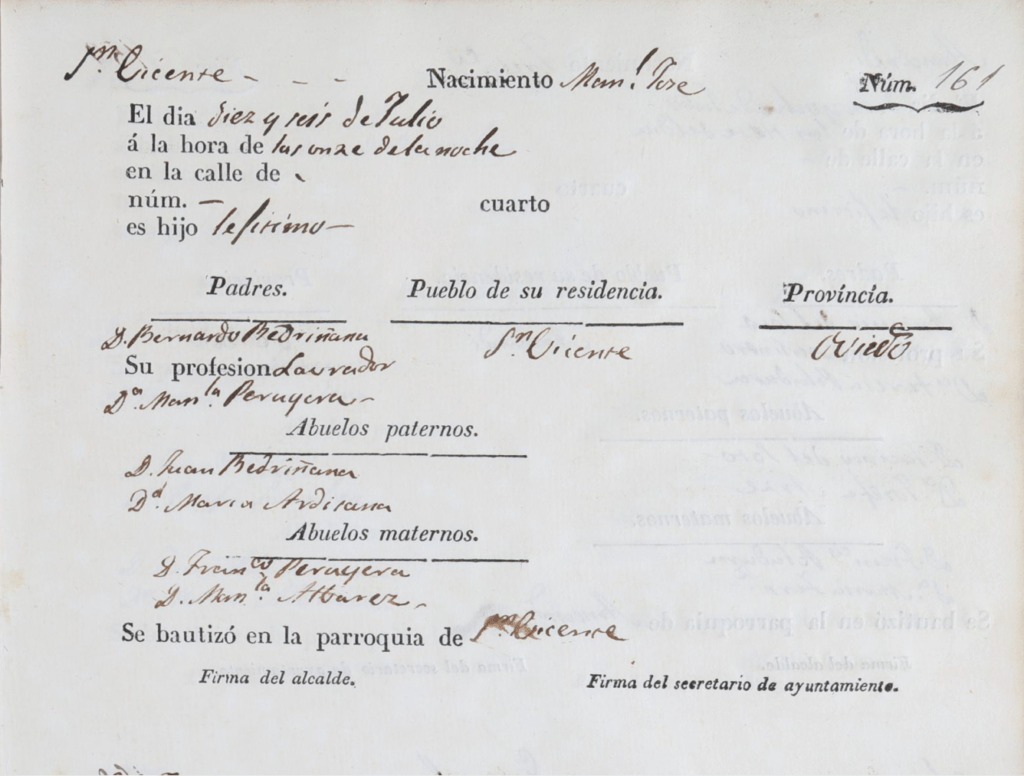 Sn. Vicente - - - Nacimiento Manl. Jose Núm. 161
El dia diez y seis de Julio
á la hora de las onze de la noche
en la calle de
núm. — cuarto
es hijo lefitimo —
Padres. Pueblo de su residencia. Província.
D. Bernardo Bedriñana Sn. Vicente Oviedo
Su profesion Lavrador
Da. Manla. Peruyera -
Abuelos paternos.
D. Juan Bedriñana
Da. Maria Ardisana
Abuelos maternos.
D. Franco. Peruyera
D. Manla. Albarez -
Se bautizó en la parroquia de Sn. Vicente
Firma del alcalde. Firma del secretario de ayuntamiento.